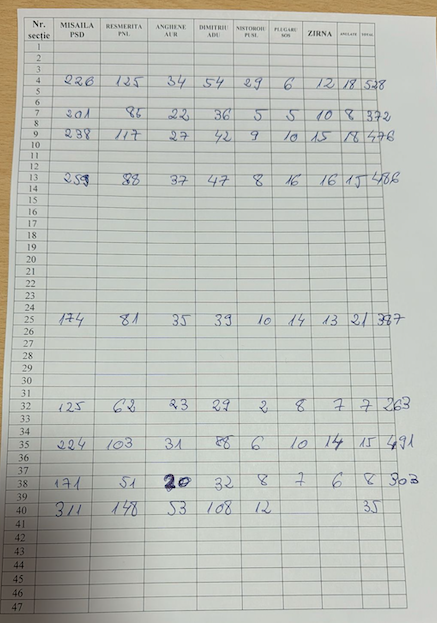 Nr. secție MISAILA PSD RESMERITA PNL ANGHENE AUR DIMITRIU ADU NISTOROIU PUSL PLUGARU SOS ZIRNA ANULATE TOTAL
1
2
3
4 226 125 34 54 29 6 12 18 528
5
6
7 201 85 22 36 5 5 10 8 372
8
9 238 117 27 42 9 10 15 18 476
10
11
12
13 259 88 37 47 8 16 16 15 486
14
15
16
17
18
19
20
21
22
23
24
25 174 81 35 39 10 14 13 21 387
26
27
28
29
30
31
32 125 62 23 29 2 8 7 7 263
33
34
35 224 103 31 6 10 14 15 491
36
37
38 171 51 20 32 8 7 6 8 303
39
40 311 148 53 108 12 35
41
42
43
44
45
46
47